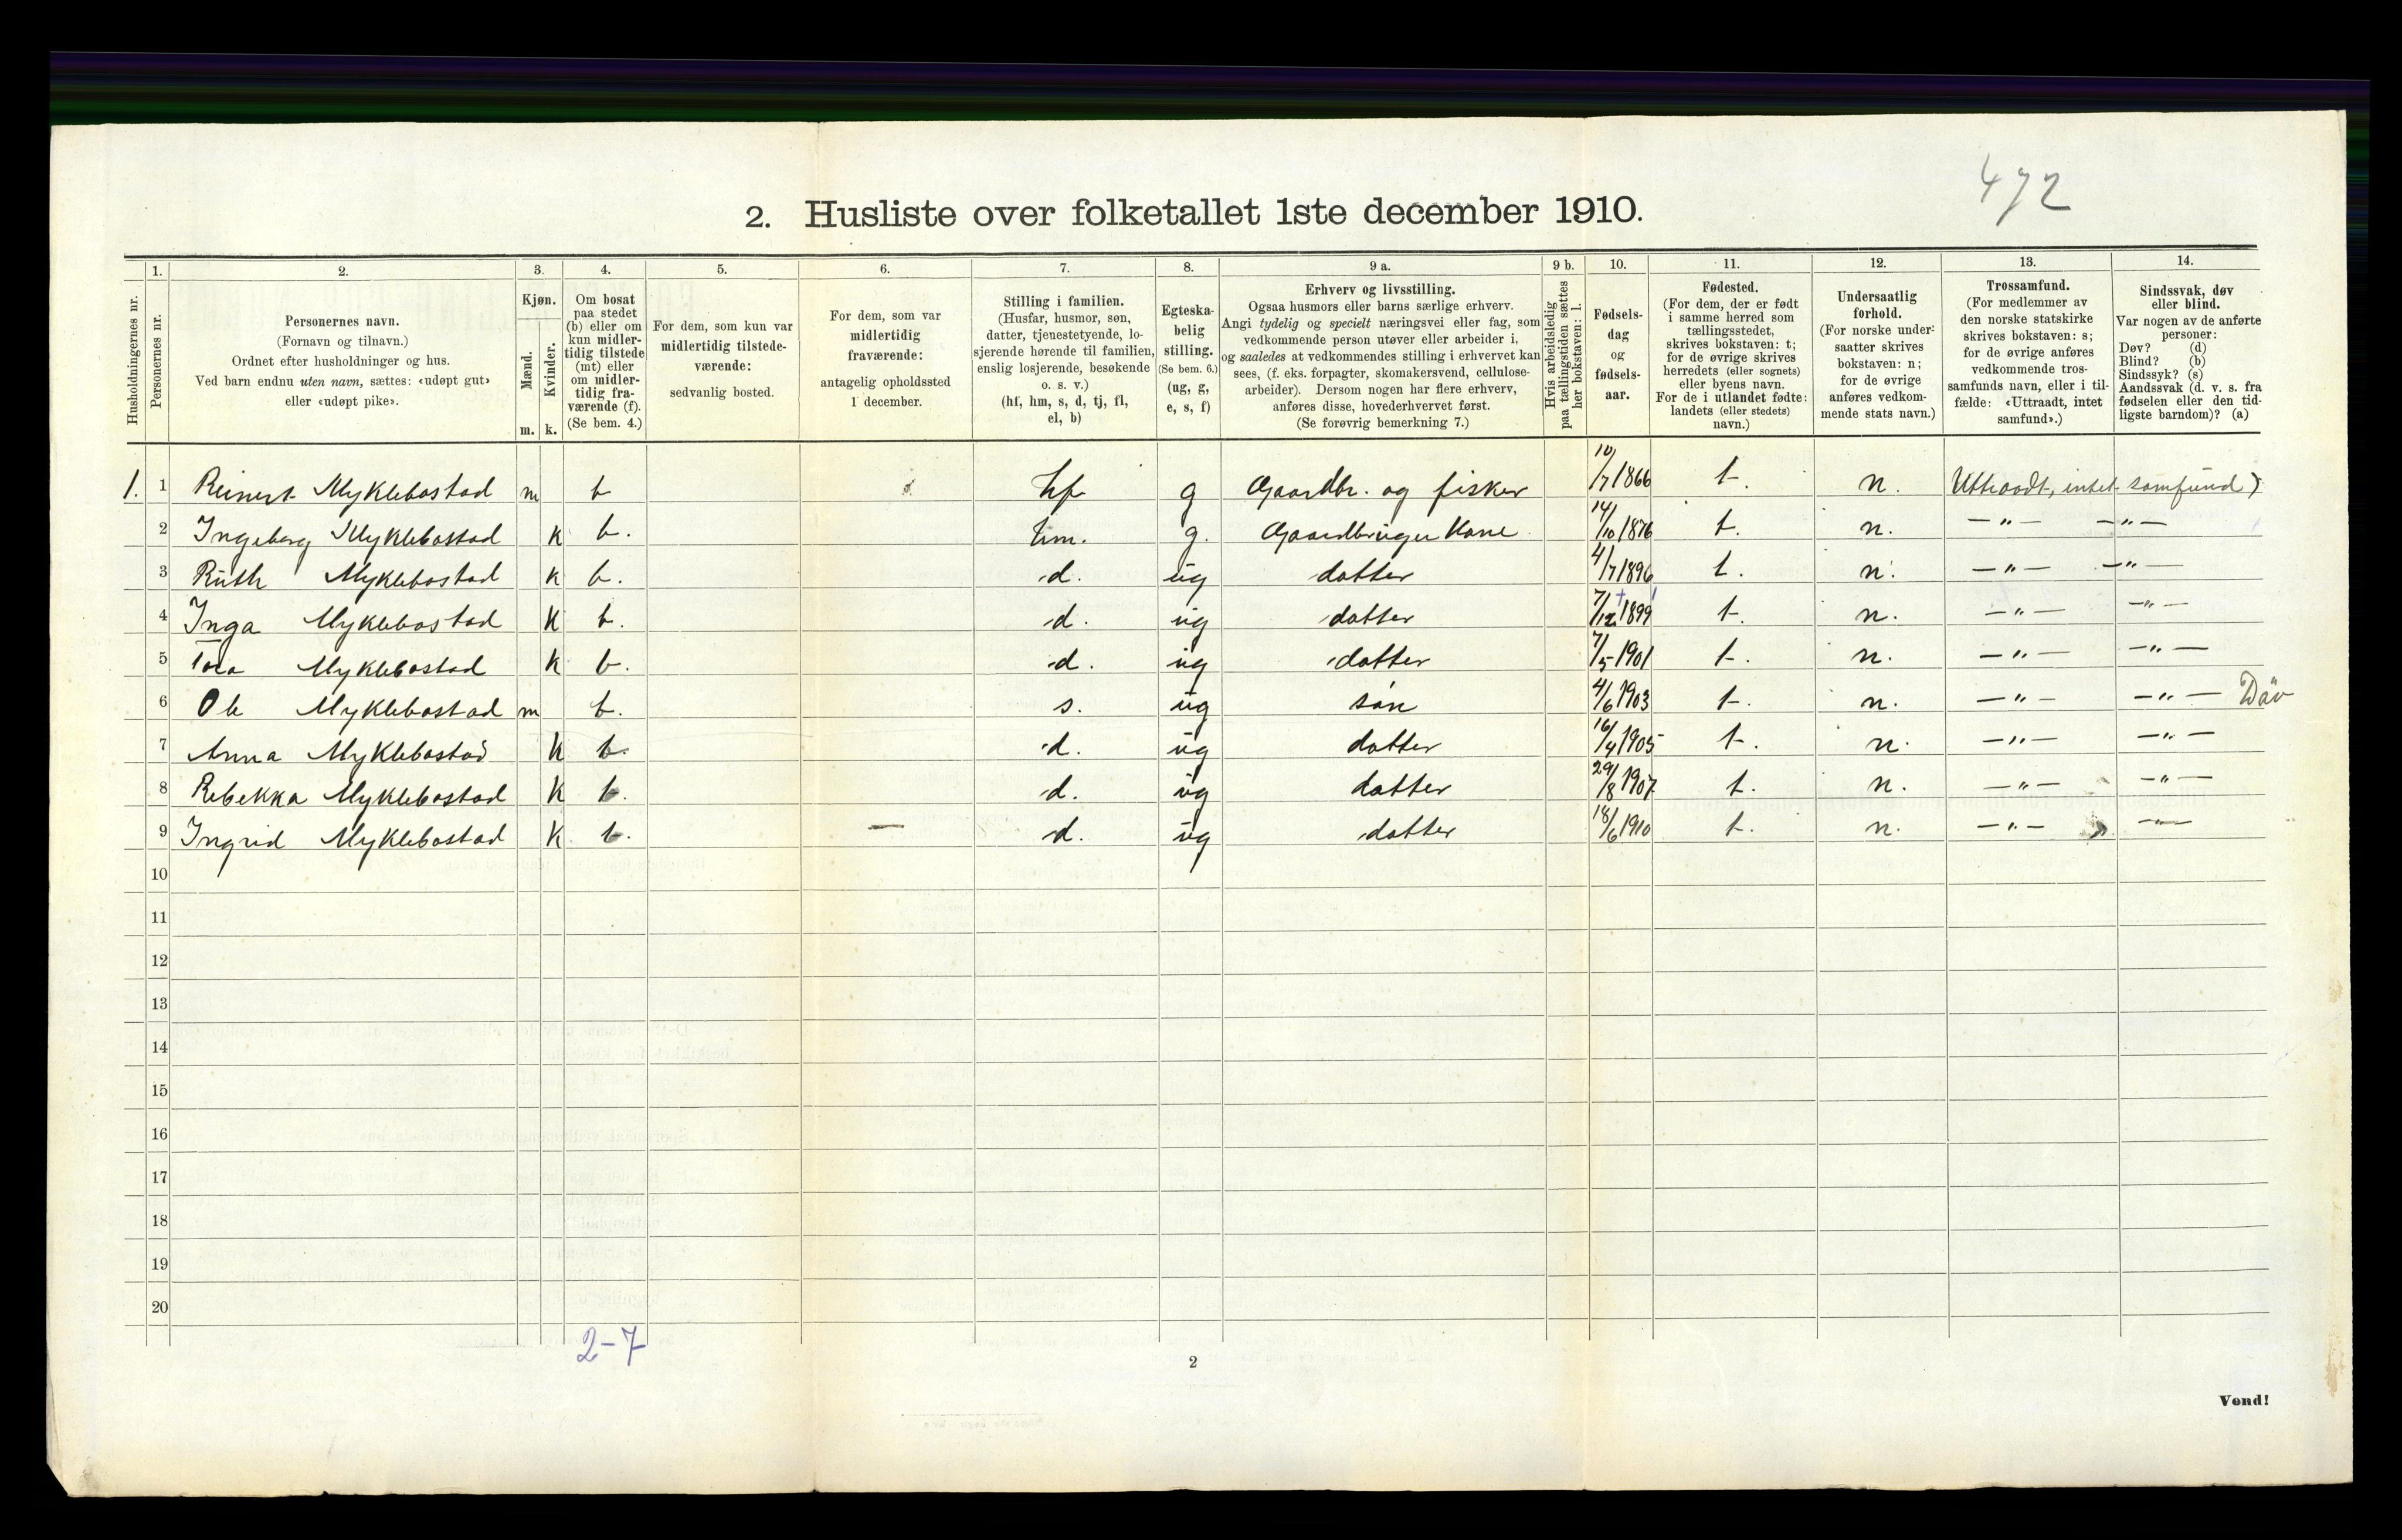 472
2. Husliste over folketallet 1ste december 1910.
Husholdningernes nr.
1.
Personernes nr.
2.
Personernes navn.
(Fornavn og tilnavn.)
Ordnet efter husholdninger og hus.
Ved barn endnu uten navn, sættes: «udøpt gut»
eller «udøpt pike».
3.
Kjøn.
Mænd.
Kvinder.
m. k.
4.
Om bosat
paa stedet
(b) eller om
kun midler-
tidig tilstede
(mt) eller
om midler-
tidig fra-
værende (f).
(Se bem. 4.)
5.
For dem, som kun var
midlertidig tilstede-
værende:
sedvanlig bosted.
6.
For dem, som var
midlertidig
fraværende:
antagelig opholdssted
1 december.
7.
Stilling i familien.
(Husfar, husmor, søn,
datter, tjenestetyende, lo-
sjerende hørende til familien,
enslig losjerende, besøkende
o. s. v.)
(hf, hm, s, d, tj, fl,
el, b)
8.
Egteska-
belig
stilling.
(Se bem. 6.)
(ug, g,
e, s, f)
9 a.
Erhverv og livsstilling.
Ogsaa husmors eller barns særlige erhverv.
Angi tydelig og specielt næringsvei eller fag, som
vedkommende person utøver eller arbeider i,
og saaledes at vedkommendes stilling i erhvervet kan
sees, (f. eks. forpagter, skomakersvend, cellulose-
arbeider). Dersom nogen har flere erhverv,
anføres disse, hovederhvervet først.
(Se forøvrig bemerkning 7.)
9 b.
Hvis arbeidsledig
paa tællingstiden sættes
her bokstaven: l.
10.
Fødsels-
dag
og
fødsels-
aar.
11.
Fødested.
(For dem, der er født
i samme herred som
tællingsstedet,
skrives bokstaven: t;
for de øvrige skrives
herredets (eller sognets)
eller byens navn.
For de i utlandet fødte:
landets (eller stedets)
navn.)
12.
Undersaatlig
forhold.
(For norske under-
saatter skrives
bokstaven: n;
for de øvrige
anføres vedkom-
mende stats navn.)
13.
Trossamfund.
(For medlemmer av
den norske statskirke
skrives bokstaven: s;
for de øvrige anføres
vedkommende tros-
samfunds navn, eller i til-
fælde: «Uttraadt, intet
samfund».)
14.
Sindssvak, døv
eller blind.
Var nogen av de anførte
personer:
Døv? (d)
Blind? (b)
Sindssyk? (s)
Aandssvak (d. v. s. fra
fødselen eller den tid-
ligste barndom)? (a)
1. 1 Reinert Myklebostad m b hf g Gaardbr. og fisker 10/7 1866 t. n. Uttraadt, intet samfund)
2 Ingeborg Myklebostad k b. hm. g. Gaardbruger Kone 14/10 1876 t. n. —"— —"—
3 Ruth Myklebostad k b. d. ug datter 4/7 1896 t. n. —"— —"—
4 Inga Myklebostad k b. d. ug datter 7/12 1899 t. n. —"— —"—
5 Tora Myklebostad k b. d. ug datter 7/5 1901 t. n. —"— —"—
6 Ole Myklebostad m b. s. ug søn 4/6 1903 t. n. —"— —"— Døv
7 Anna Myklebostad k b. d. ug datter 16/4 1905 t. n. —"— —"—
8 Rebekka Myklebostad k b. d. ug datter 29/8 1907 t. n. —"— —"—
9 Ingrid Myklebostad k b. — d. ug datter 18/6 1910 t. n. —"— —"—
10
11
12
13
14
15
16
17
18
19
20
2-7
2
Vend!